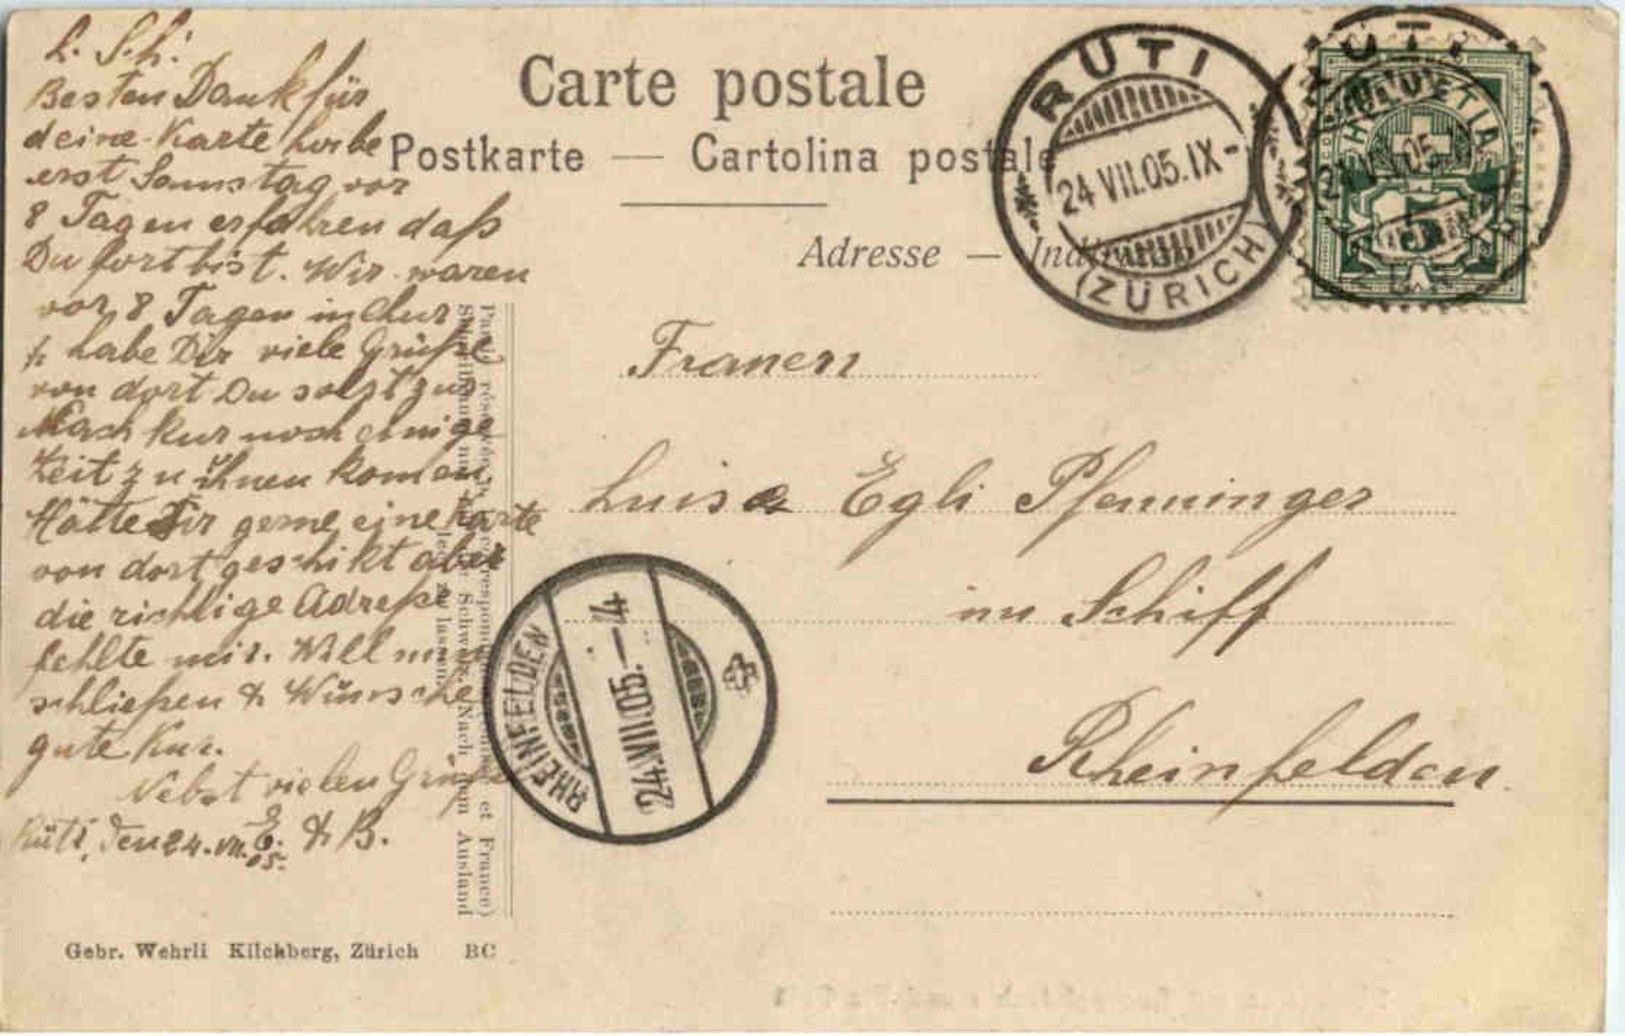 L. S. h.
Besten Dank für
deine Karte habe
erst Samstag vor
8 Tagen erfahren daß
Du fort bist. Wir waren
vor 8 Tagen in Chur
& habe Dir viele Grüße
von dort Du solst zur
Nach kur noch einige
Zeit zu ihnen komen
Hätte Dir gerne eine Karte
von dort geschikt aber
die richtige Adreße
fehlte mir. Will nun
schließen & Wünsche
gute Kur.
Nebst vielen Grüße
E. & B.
Rüti, den 24. VII. 05.
Gebr. Wehrli Kilchberg, Zürich BC
Carte postale
Postkarte — Cartolina postale
Adresse —
RÜTI
24 VII.05.IX-
(ZÜRICH)
HELVETIA
5
Frauen
Luise Egli Pfenninger
im Schiff
Rheinfelden
RHEINFELDEN
24.VII.05.—4